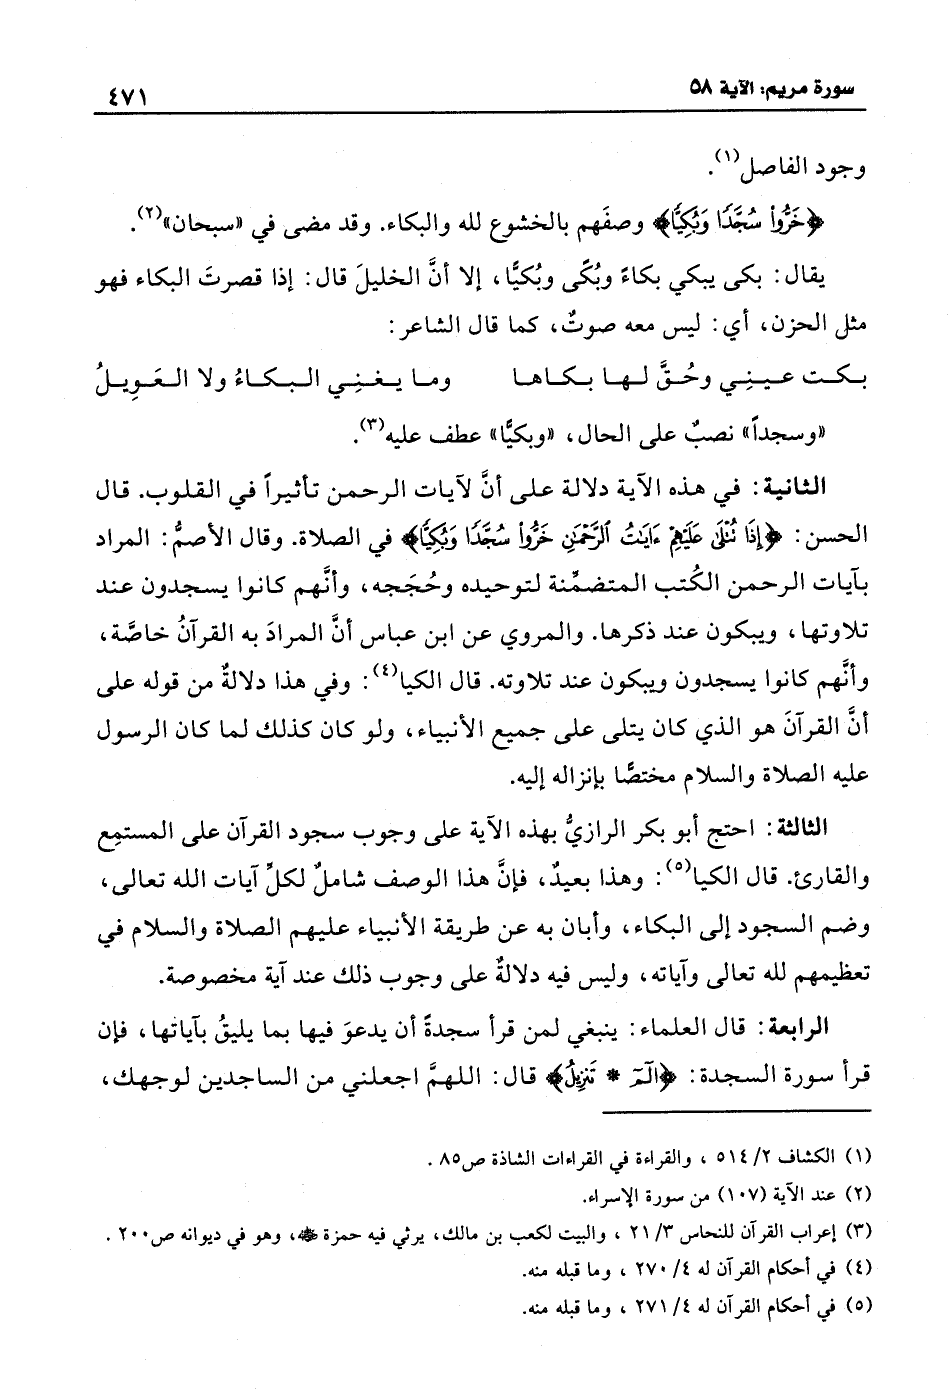 سورة مريم: الآية ٥٨
٤٧١
وجود الفاصل(١).
﴿خَرُّواْ سُجَّدًا وَبُكِيًّا﴾ وصفَهم بالخشوع لله والبكاء. وقد مضى في «سبحان»(٢).
يقال: بكى يبكي بكاءً وبُكًى وبُكيًّا، إلا أنَّ الخليلَ قال: إذا قصرتَ البكاء فهو
مثل الحزن، أي: ليس معه صوتٌ، كما قال الشاعر:
بكت عيني وحُقَّ لها بكاها وما يغنِي البكاءُ ولا العَوِيلُ
«وسجداً» نصبٌ على الحال، «وبكيًّا» عطف عليه(٣).
الثانية: في هذه الآية دلالة على أنَّ لآيات الرحمن تأثيراً في القلوب. قال
الحسن: ﴿إِذَا تُتْلَى عَلَيْهِمْ ءَايَتُ الرَّحْمَنِ خَرُّواْ سُجَّدًا وَبُكِيًّا﴾ في الصلاة. وقال الأصمُّ: المراد
بآيات الرحمن الكُتب المتضمِّنة لتوحيده وحُجَجه، وأنَّهم كانوا يسجدون عند
تلاوتها، ويبكون عند ذكرها. والمروي عن ابن عباس أنَّ المرادَ به القرآنُ خاصَّة،
وأنَّهم كانوا يسجدون ويبكون عند تلاوته. قال الكيا(٤): وفي هذا دلالةٌ من قوله على
أنَّ القرآنَ هو الذي كان يتلى على جميع الأنبياء، ولو كان كذلك لما كان الرسول
عليه الصلاة والسلام مختصًّا بإنزاله إليه.
الثالثة: احتج أبو بكر الرازيُّ بهذه الآية على وجوب سجود القرآن على المستمِع
والقارئ. قال الكيا(٥): وهذا بعيدٌ، فإنَّ هذا الوصف شاملٌ لكلِّ آيات الله تعالى،
وضم السجود إلى البكاء، وأبان به عن طريقة الأنبياء عليهم الصلاة والسلام في
تعظيمهم لله تعالى وآياته، وليس فيه دلالةٌ على وجوب ذلك عند آية مخصوصة.
الرابعة: قال العلماء: ينبغي لمن قرأ سجدةً أن يدعوَ فيها بما يليقُ بآياتها، فإن
قرأ سورة السجدة: ﴿الٓمٓ * تَنزِيلُ﴾ قال: اللهمَّ اجعلني من الساجدين لوجهك،
(١) الكشاف ٢/ ٥١٤ ، والقراءة في القراءات الشاذة ص٨٥ .
(٢) عند الآية (١٠٧) من سورة الإسراء.
(٣) إعراب القرآن للنحاس ٣/ ٢١ ، والبيت لكعب بن مالك، يرثي فيه حمزة ﷺ، وهو في ديوانه ص٢٠٠ .
(٤) في أحكام القرآن له ٤/ ٢٧٠ ، وما قبله منه.
(٥) في أحكام القرآن له ٤/ ٢٧١ ، وما قبله منه.